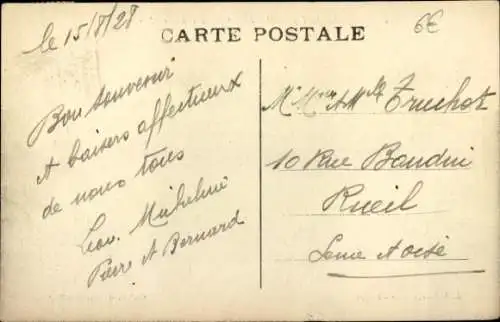 le 15/8/28
CARTE POSTALE
6€
Bon souvenir
et baisers affectueux
de nous tous
Léon. Micheline
Pierre et Bernard
Mr Mme et Mlle Truchot
10 Rue Baudin
Rueil
Seine et oise